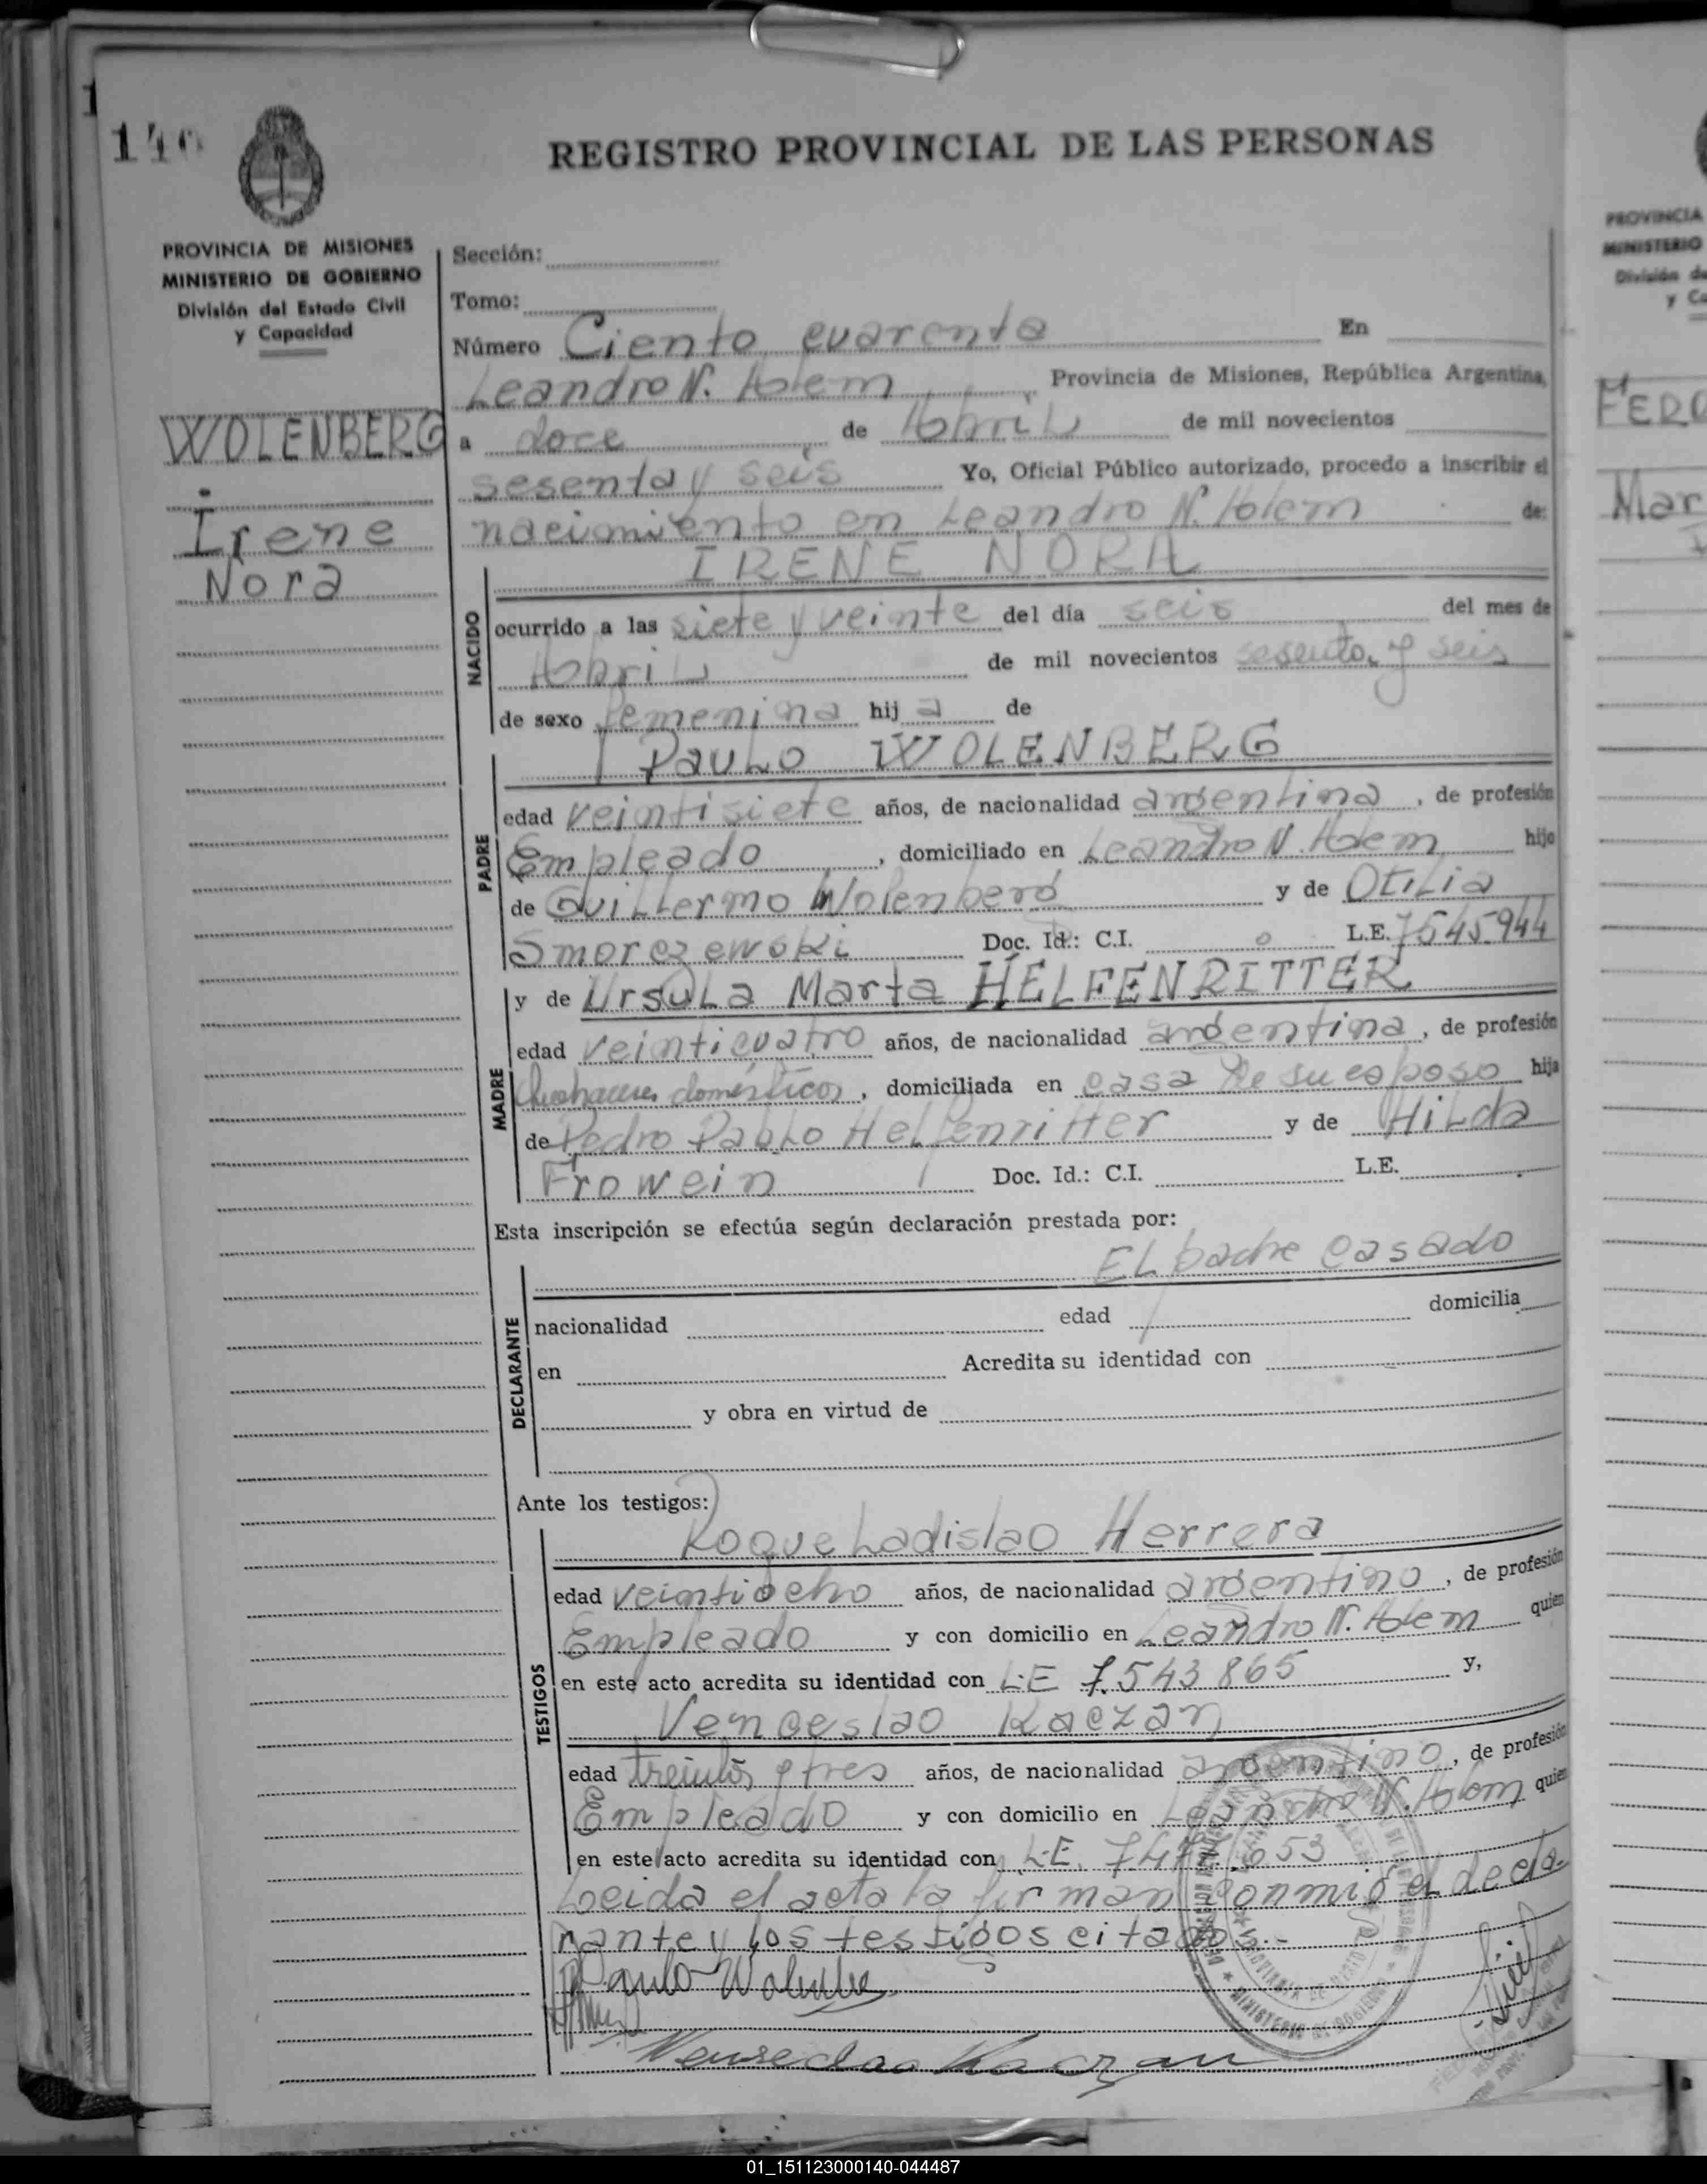 140
REGISTRO PROVINCIAL DE LAS PERSONAS
PROVINCIA DE MISIONES
MINISTERIO DE GOBIERNO
División del Estado Civil
y Capacidad
WOLENBERG
Irene
Nora
Sección:
Tomo:
Número Ciento cuarenta En
Leandro N. Alem Provincia de Misiones, República Argentina,
a doce de Abril de mil novecientos
sesenta y seis Yo, Oficial Público autorizado, procedo a inscribir el
nacimiento en Leandro N. Alem de:
IRENE NORA
NACIDO
ocurrido a las siete y veinte del día seis del mes de
Abril de mil novecientos sesenta y seis
de sexo femenina hija de
Paulo WOLENBERG
PADRE
edad veintisiete años, de nacionalidad argentina, de profesión
Empleado, domiciliado en Leandro N. Alem hijo
de Guillermo Wolenberg y de Otilia
Smorczewski Doc. Id.: C.I. L.E. 7545.944
y de Ursula Marta HELFENRITTER
MADRE
edad veinticuatro años, de nacionalidad argentina, de profesión
Quehaceres domésticos, domiciliada en casa de su esposo hija
de Pedro Pablo Helfenritter y de Hilda
Frowein Doc. Id.: C.I. L.E.
Esta inscripción se efectúa según declaración prestada por:
El padre casado
DECLARANTE
nacionalidad edad domicilia
en Acredita su identidad con
y obra en virtud de
Ante los testigos:
Roque Ladislao Herrera
TESTIGOS
edad veintiocho años, de nacionalidad argentino, de profesión
Empleado y con domicilio en Leandro N. Alem quien
en este acto acredita su identidad con L.E 7.543865 y,
Venceslao Kaczan
edad treinta y tres años, de nacionalidad argentino, de profesión
Empleado y con domicilio en Leandro N. Alem quien
en este acto acredita su identidad con L.E. 653
Leida el acta la firman conmigo el decla-
rante y los testigos citados.-
Paulo Wolenberg
Wenseslao Kaczan
MINISTERIO DE GOBIERNO
PROVINCIA
MINISTERIO
División de
y Ca
Mar
01_151123000140-044487